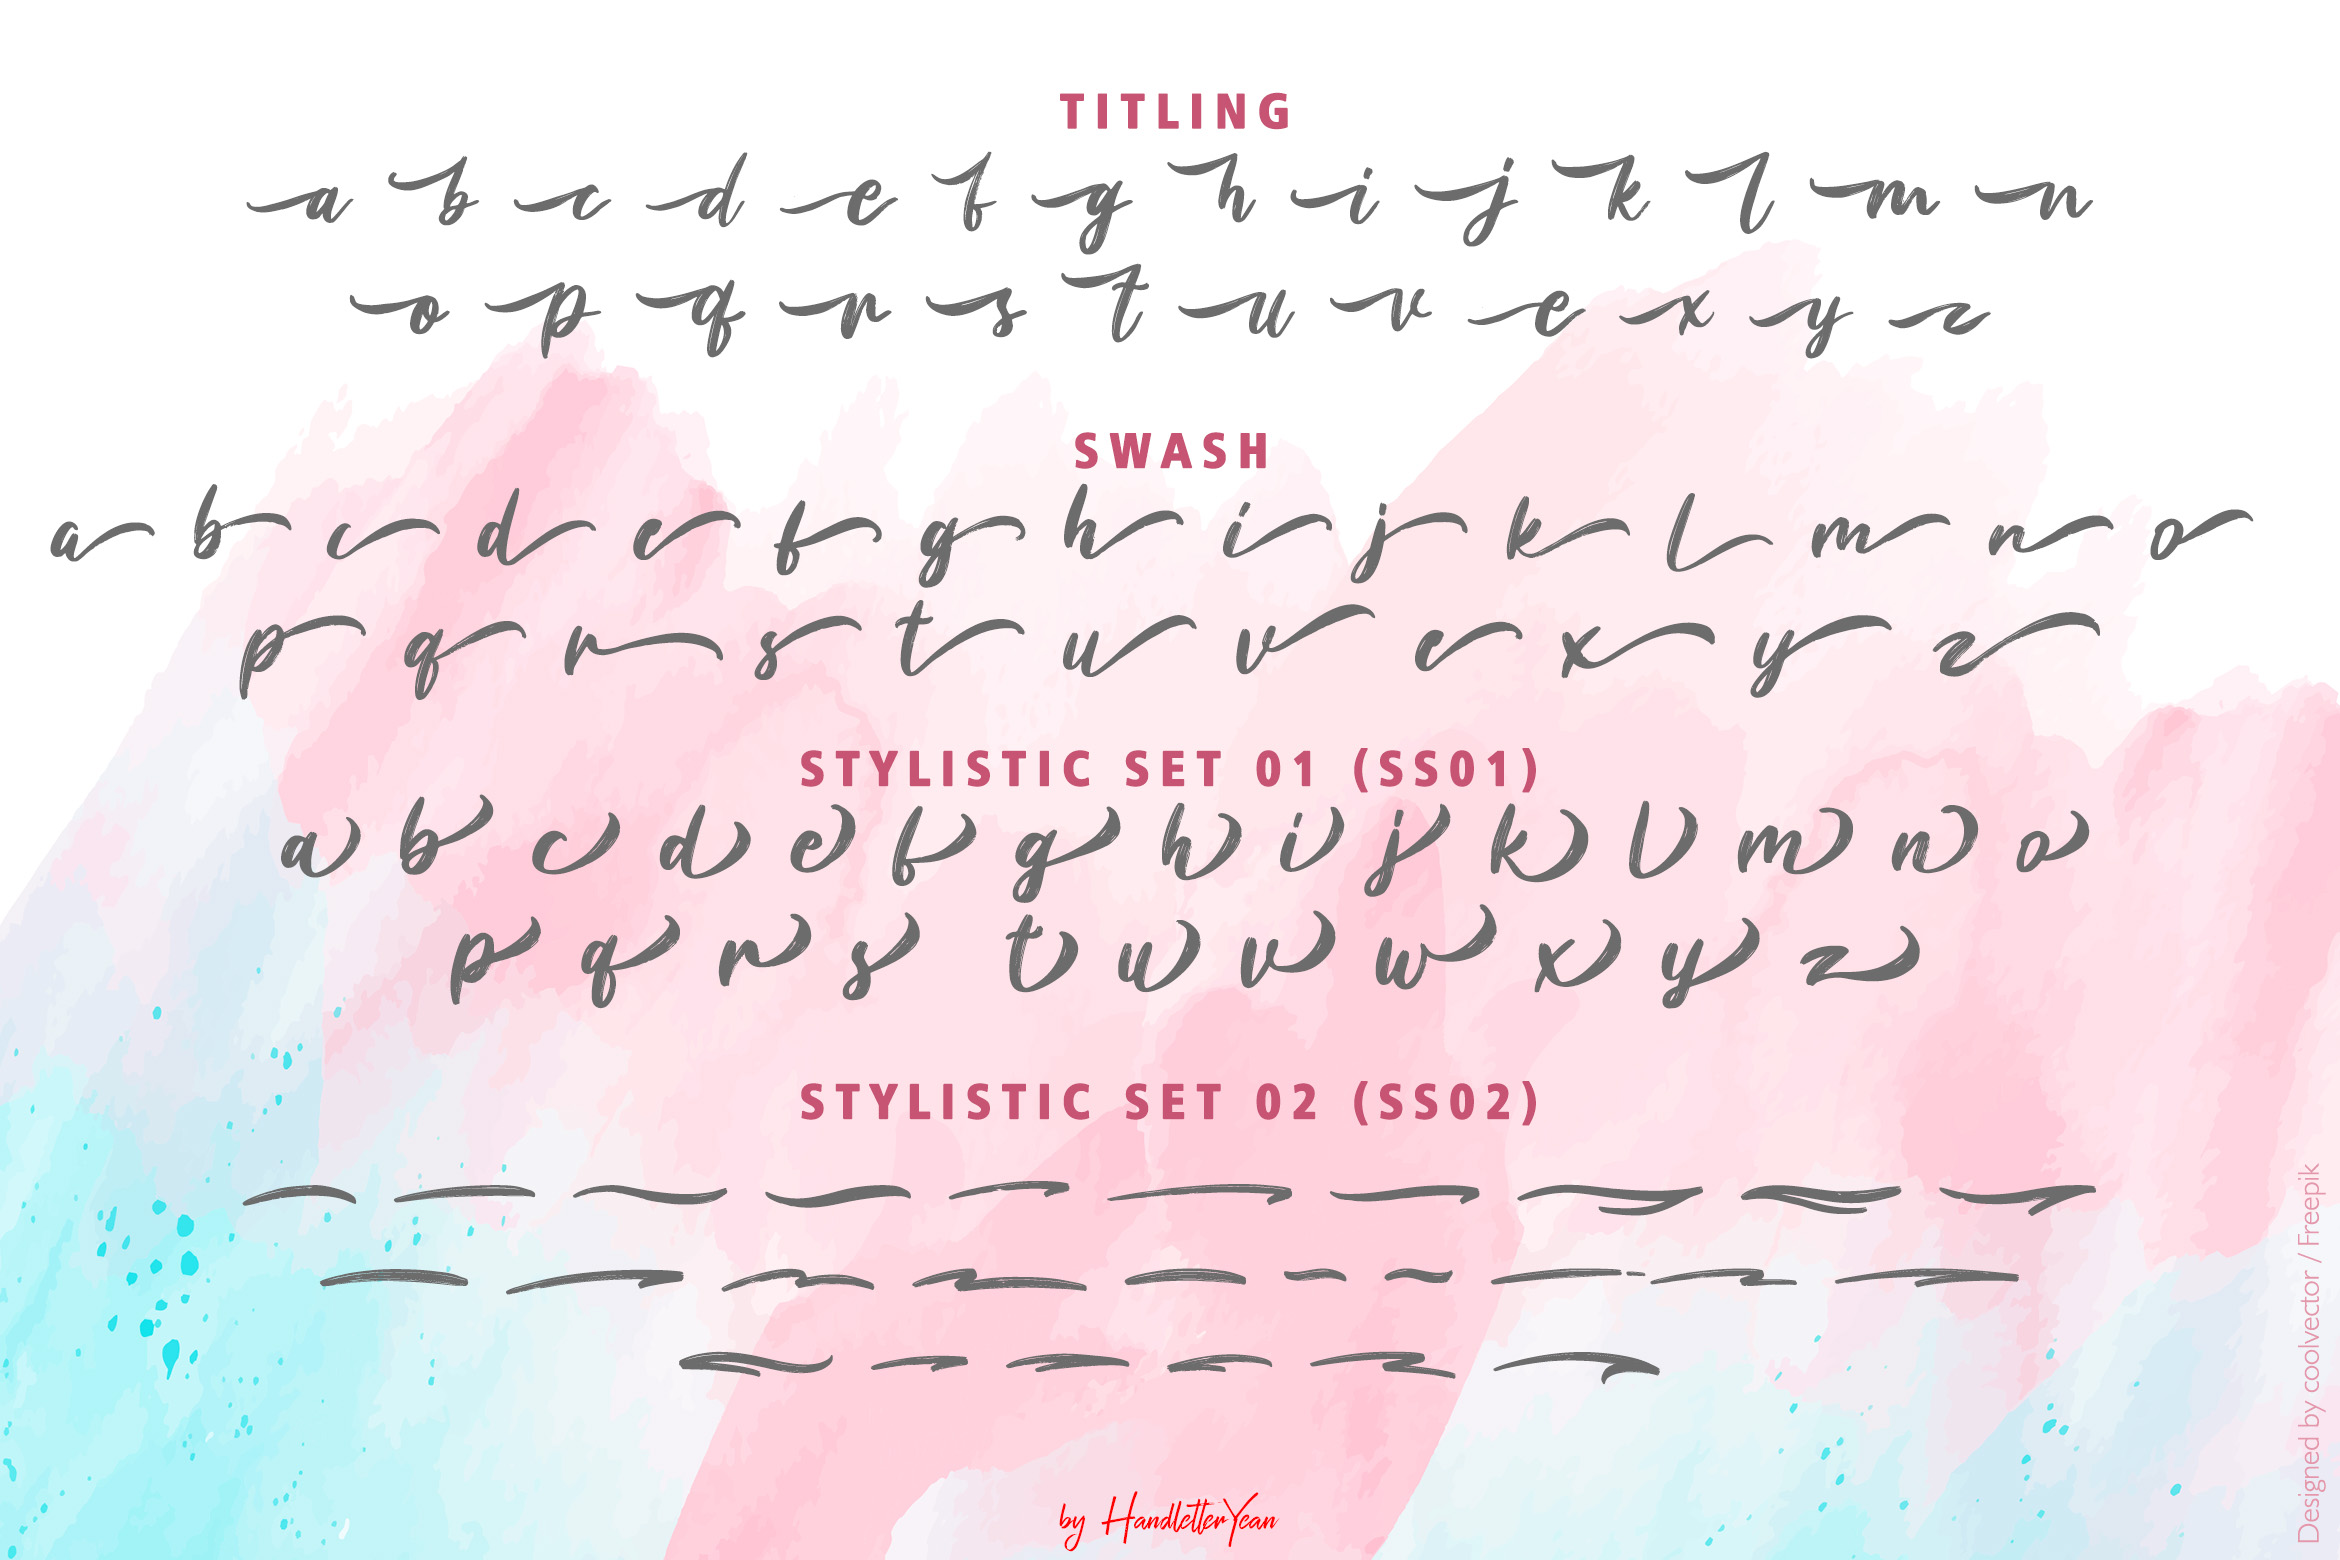 TITLING
a b c d e f g h i j k l m n
o p q r s t u v e x y z
SWASH
a b c d e f g h i j k l m n o
p q r s t u v e x y z
STYLISTIC SET 01 (SS01)
a b c d e f g h i j k l m n o
p q r s t u v w x y z
STYLISTIC SET 02 (SS02)
by HandletterYean
Designed by coolvector / Freepik